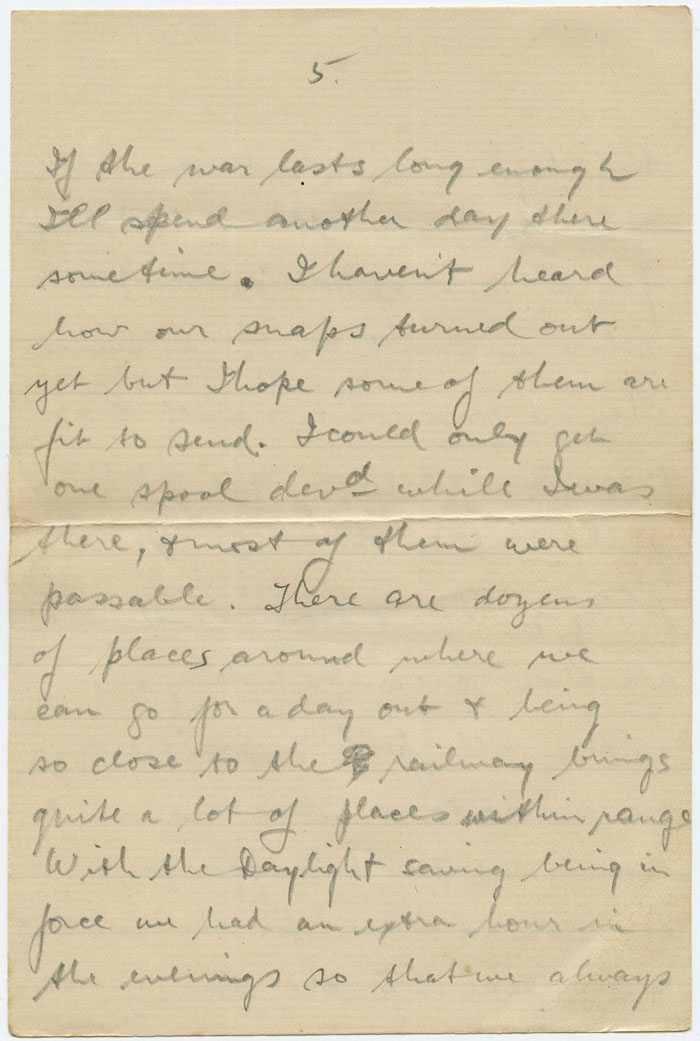 5.
If the war lasts long enough
I'll spend another day there
sometime. I haven't heard
how our snaps turned out
yet but I hope some of them are
fit to send. I could only get
one spool devd while I was
there, & most of them were
passable. There are dozens
of places around where we
can go for a day out & being
so close to the railway brings
quite a lot of places within range
With the Daylight saving being in
force we had an extra hour in
the evenings so that we always